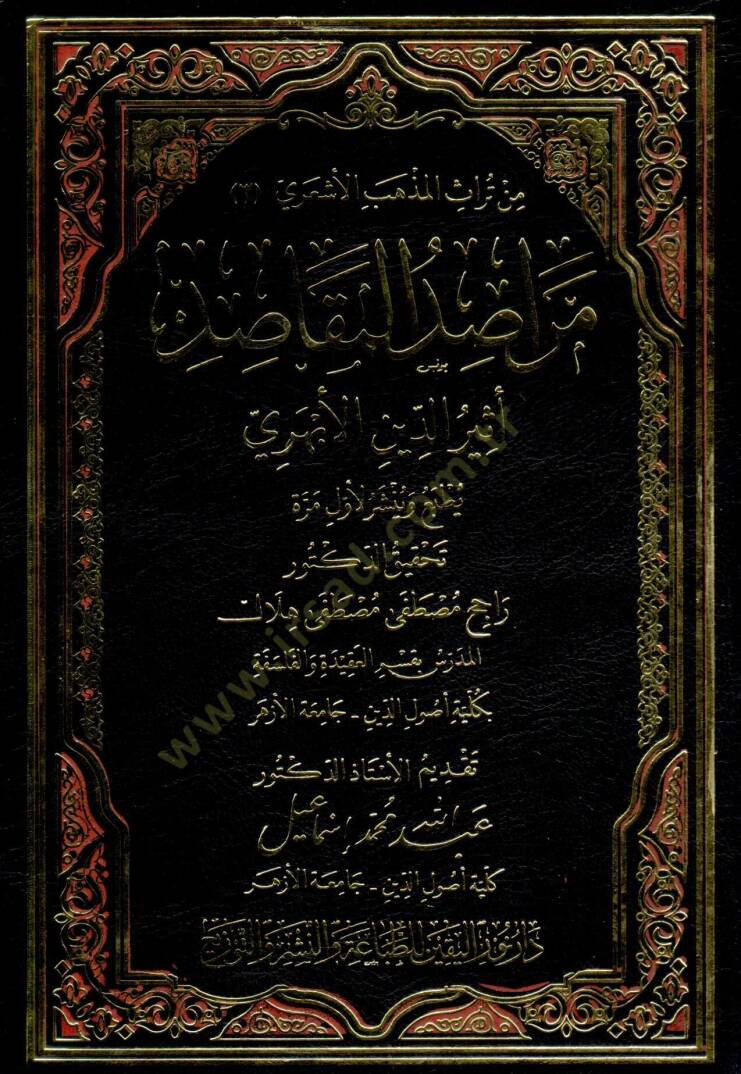 مِنْ تُرَاثِ المَذْهَبِ الأَشْعَرِي (٣)
مَرَاصِدُ المَقَاصِدِ
أَثِيرُ الدِّينِ الأَبْهَرِيّ
يُطْبَعُ وَيُنْشَرُ لأَوَّلِ مَرَّة
تَحْقِيقُ الدكْتُور
رَاجِح مُصْطَفَى مُصْطَفَى هِلَال
المدَرسُ بقِسْمِ العَقِيدَةِ وَالفَلسَفَةِ
بكلِّيةِ أصُولِ الدِّينِ - جَامِعَة الأزهَر
تَقْدِيمُ الأسْتَاذِ الدكتُور
عبد الله محمد إسماعيل
كليَّة أصُولِ الدِّينِ - جَامِعَة الأزهَر
دار نور اليقين للطباعة والنشر والتوزيع
www.irsad.com.tr